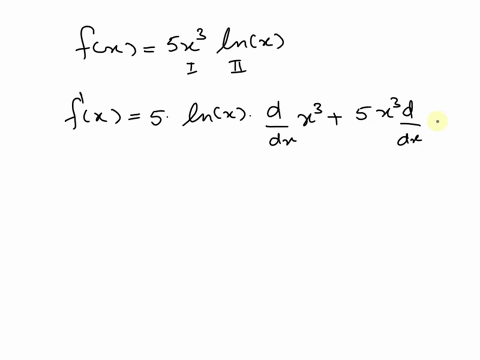 f(x) = 5x³ ln(x)
I II
f'(x) = 5. ln(x). d/dx x³ + 5x³ d/dx